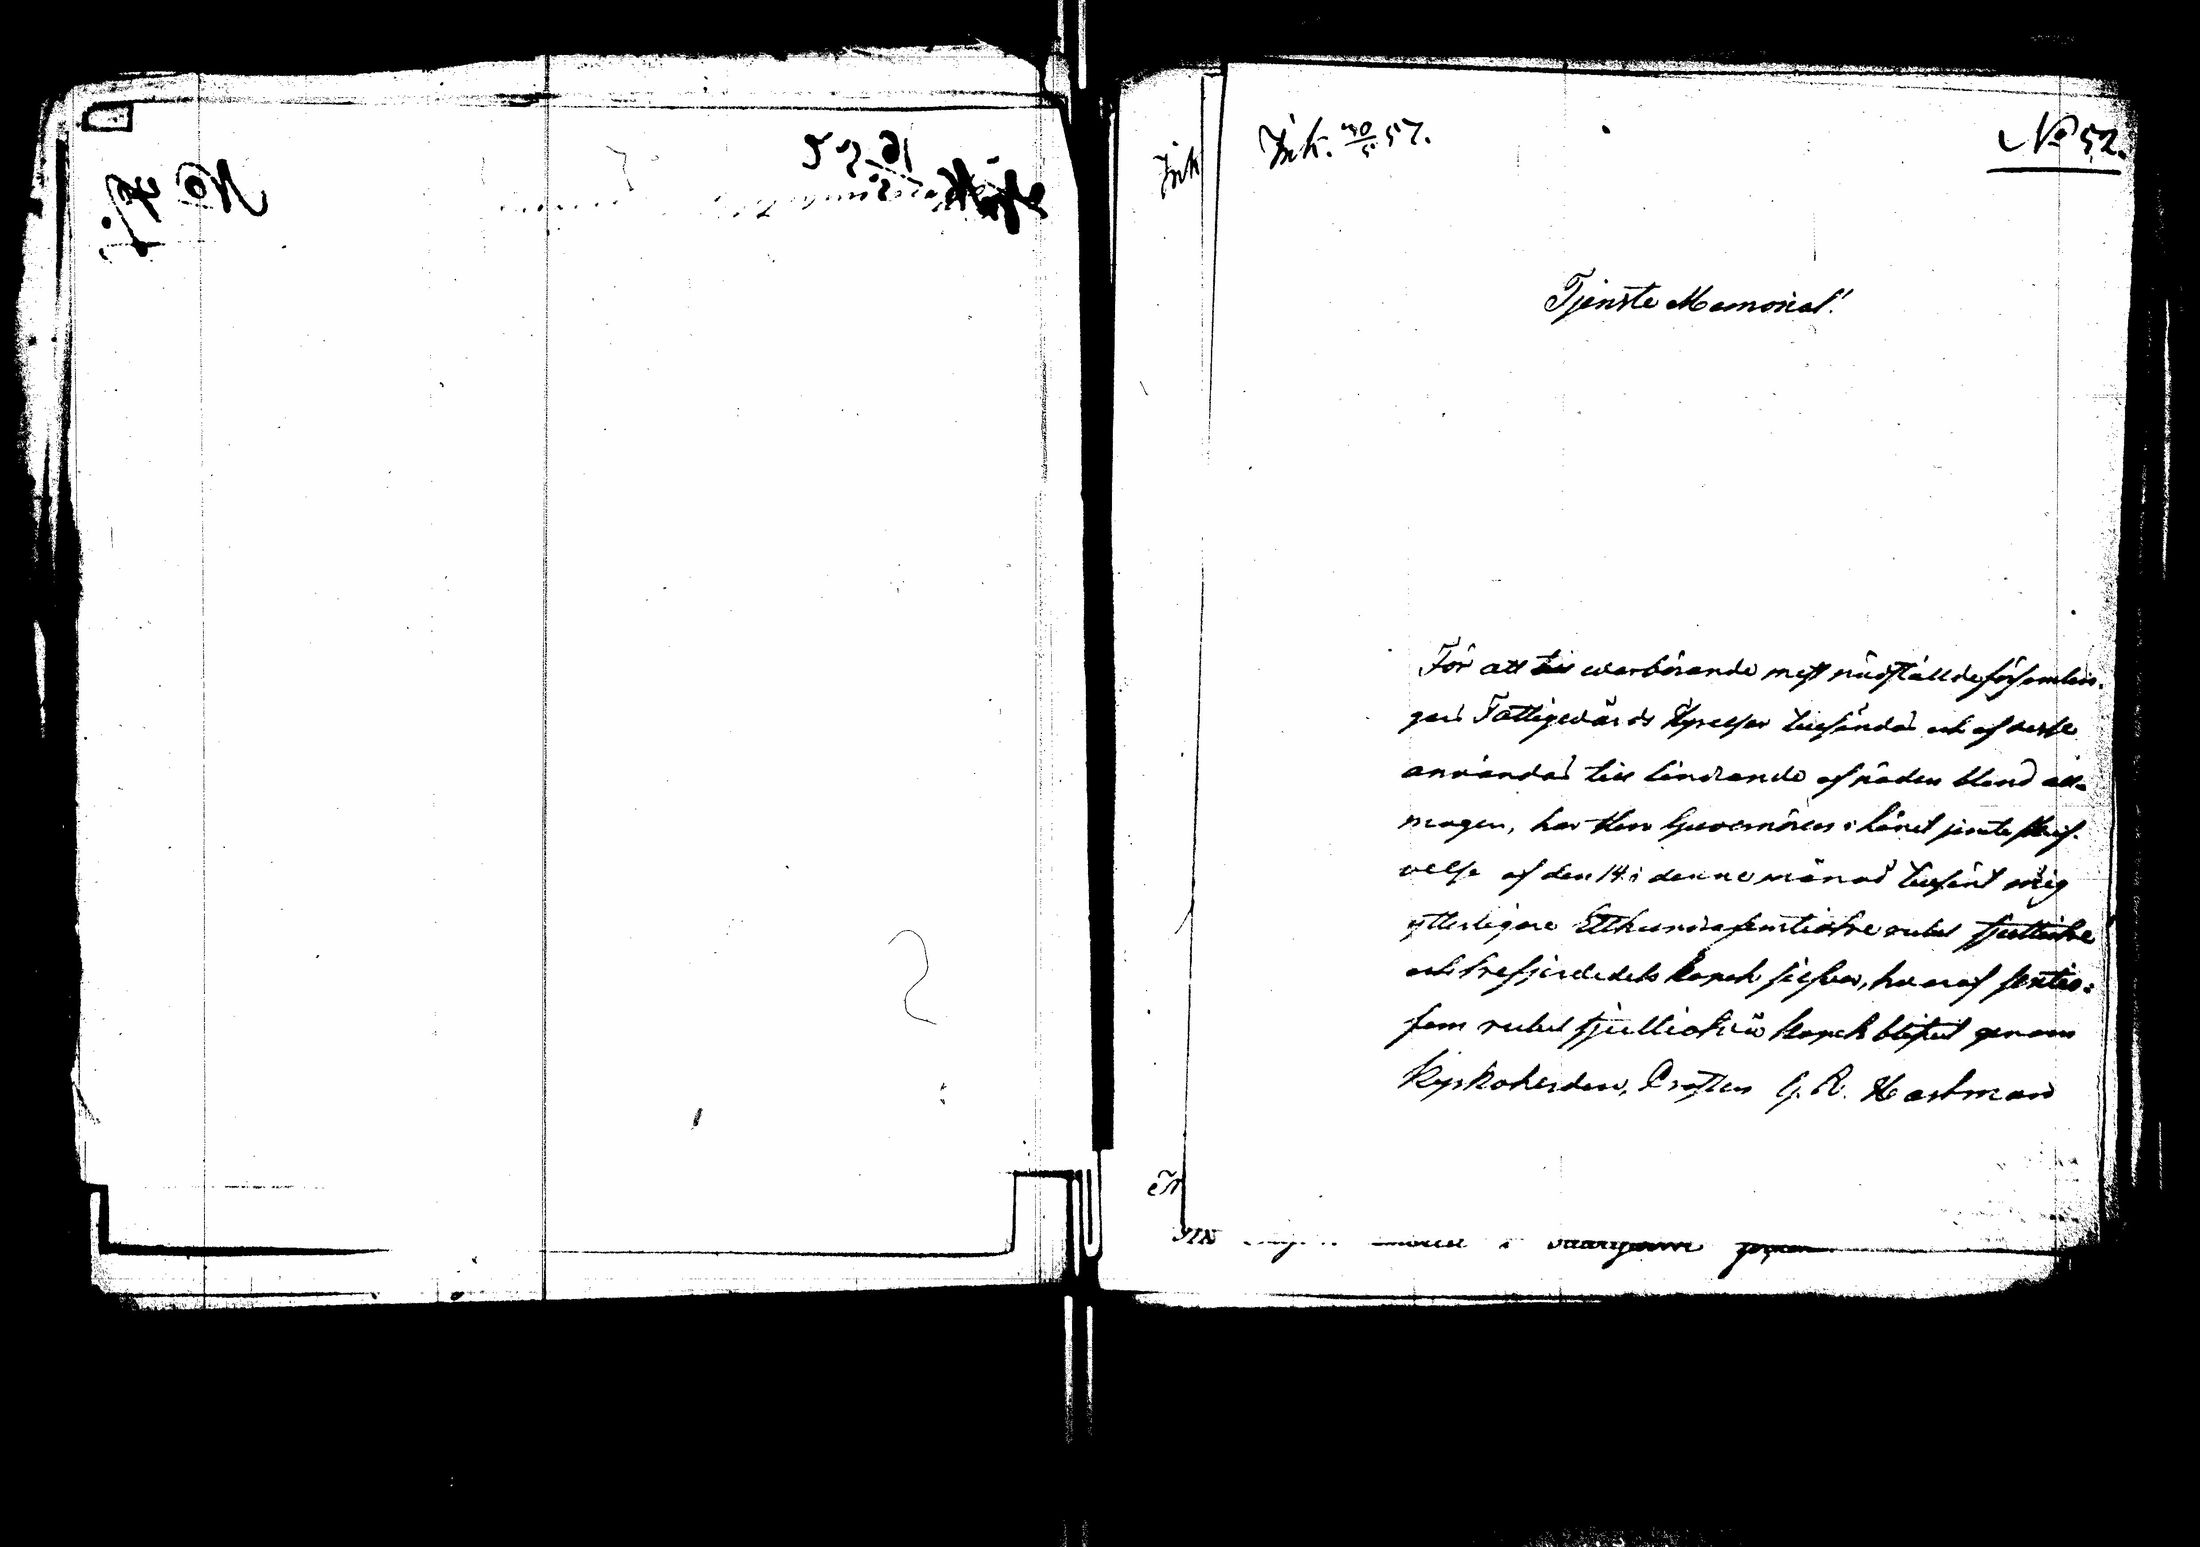 Ink. 30/5 57.
No 52.
Tjenste Memorial!
För att till wederbörande mest nödställde församlin-
gars Fattigvårds Styrelser tillsändas och af desse
användas till lindrande af nöden bland all-
mogen, har Herr Guvernören i länet jemte skrif-
velse af den 14 i denne månad tillsändt mig
ytterligare Etthundrafemtiotre rubel sjuttiotre
och trefjerdedels kopek silfver, hvaraf sextio-
fem rubel sjuttiotvå kopek blifvit genom
Kyrkoherden, Prosten G. R. Hartman